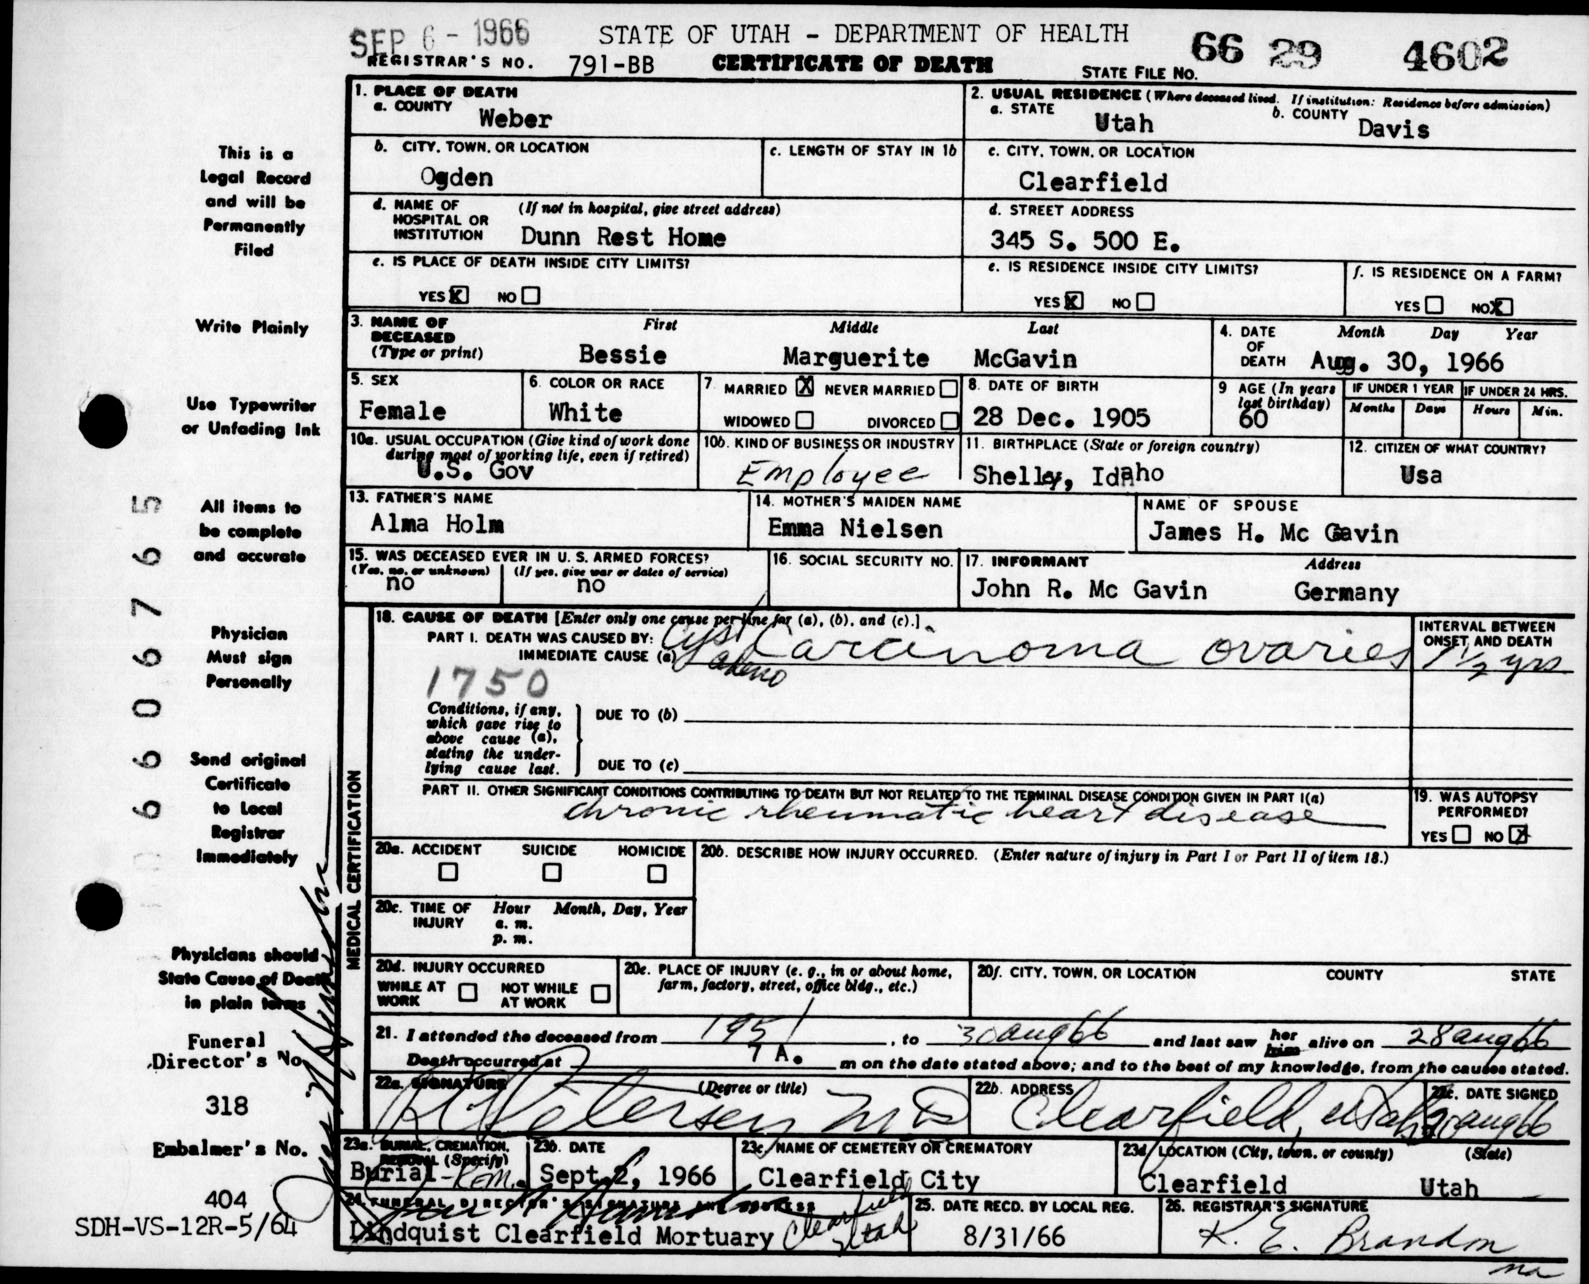 SEP 6 - 1966
STATE OF UTAH - DEPARTMENT OF HEALTH
66 29 4602
REGISTRAR'S NO. 791-BB CERTIFICATE OF DEATH STATE FILE No.
1. PLACE OF DEATH
a. COUNTY
Weber
2. USUAL RESIDENCE (Where deceased lived. If institution: Residence before admission)
a. STATE b. COUNTY
Utah Davis
b. CITY, TOWN, OR LOCATION
Ogden
c. LENGTH OF STAY IN 1b
c. CITY, TOWN, OR LOCATION
Clearfield
d. NAME OF HOSPITAL OR INSTITUTION (If not in hospital, give street address)
Dunn Rest Home
d. STREET ADDRESS
345 S. 500 E.
e. IS PLACE OF DEATH INSIDE CITY LIMITS?
YES X NO
e. IS RESIDENCE INSIDE CITY LIMITS?
YES X NO
f. IS RESIDENCE ON A FARM?
YES NO X
3. NAME OF DECEASED (Type or print) First Middle Last
Bessie Marguerite McGavin
4. DATE OF DEATH Month Day Year
Aug. 30, 1966
5. SEX
Female
6. COLOR OR RACE
White
7 MARRIED X NEVER MARRIED
WIDOWED DIVORCED
8. DATE OF BIRTH
28 Dec. 1905
9 AGE (In years last birthday)
60
IF UNDER 1 YEAR IF UNDER 24 HRS.
Months Days Hours Min.
10a. USUAL OCCUPATION (Give kind of work done during most of working life, even if retired)
U.S. Gov
10b. KIND OF BUSINESS OR INDUSTRY
Employee
11. BIRTHPLACE (State or foreign country)
Shelly, Idaho
12. CITIZEN OF WHAT COUNTRY?
Usa
13. FATHER'S NAME
Alma Holm
14. MOTHER'S MAIDEN NAME
Emma Nielsen
NAME OF SPOUSE
James H. Mc Gavin
15. WAS DECEASED EVER IN U. S. ARMED FORCES?
(Yes, no, or unknown) (If yes, give war or dates of service)
no no
16. SOCIAL SECURITY NO.
17. INFORMANT Address
John R. Mc Gavin Germany
MEDICAL CERTIFICATION
18. CAUSE OF DEATH [Enter only one cause per line for (a), (b), and (c).]
PART I. DEATH WAS CAUSED BY:
IMMEDIATE CAUSE (a) Cyst adeno Carcinoma ovaries
INTERVAL BETWEEN ONSET AND DEATH
1 1/2 yrs
1750
Conditions, if any, which gave rise to above cause (a), stating the underlying cause last.
DUE TO (b)
DUE TO (c)
PART II. OTHER SIGNIFICANT CONDITIONS CONTRIBUTING TO DEATH BUT NOT RELATED TO THE TERMINAL DISEASE CONDITION GIVEN IN PART I(a)
chronic rheumatic heart disease
19. WAS AUTOPSY PERFORMED?
YES NO X
20a. ACCIDENT SUICIDE HOMICIDE
20b. DESCRIBE HOW INJURY OCCURRED. (Enter nature of injury in Part I or Part II of item 18.)
20c. TIME OF INJURY Hour Month, Day, Year
a. m.
p. m.
20d. INJURY OCCURRED
WHILE AT WORK NOT WHILE AT WORK
20e. PLACE OF INJURY (e. g., in or about home, farm, factory, street, office bldg., etc.)
20f. CITY, TOWN, OR LOCATION COUNTY STATE
21. I attended the deceased from 1951, to 30 aug 66 and last saw her him alive on 28 aug 66
Death occurred at 7 A. m on the date stated above; and to the best of my knowledge, from the causes stated.
22a. SIGNATURE (Degree or title)
Petersen MD
22b. ADDRESS
Clearfield, Utah
22c. DATE SIGNED
30 aug 66
23a. BURIAL, CREMATION, REMOVAL (Specify)
Burial-Rem.
23b. DATE
Sept. 2, 1966
23c. NAME OF CEMETERY OR CREMATORY
Clearfield City
23d. LOCATION (City, town, or county) (State)
Clearfield Utah
24. FUNERAL DIRECTOR'S SIGNATURE AND ADDRESS
Lindquist Clearfield Mortuary Clearfield Utah
25. DATE RECD. BY LOCAL REG.
8/31/66
26. REGISTRAR'S SIGNATURE
K. E. Brandon
na
This is a
Legal Record
and will be
Permanently
Filed
Write Plainly
Use Typewriter
or Unfading Ink
All items to
be complete
and accurate
Physician
Must sign
Personally
Send original
Certificate
to Local
Registrar
Immediately
Physicians should
State Cause of Death
in plain terms
Funeral
Director's No.
318
Embalmer's No.
404
SDH-VS-12R-5/64
66067655